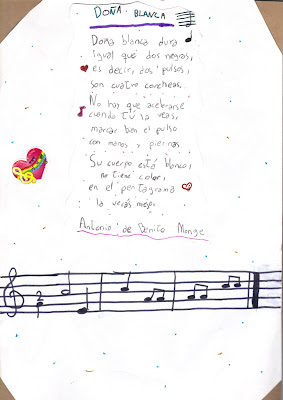 DOÑA BLANCA
Doña blanca dura
igual que dos negras,
es decir, dos pulsos,
son cuatro corcheas.
No hay que acelerarse
cuando tú la veas,
marcar bien el pulso
con manos y piernas.
Su cuerpo está blanco,
no tiene color,
en el pentagrama
la verás mejor.
Antonio de Benito Monge
2